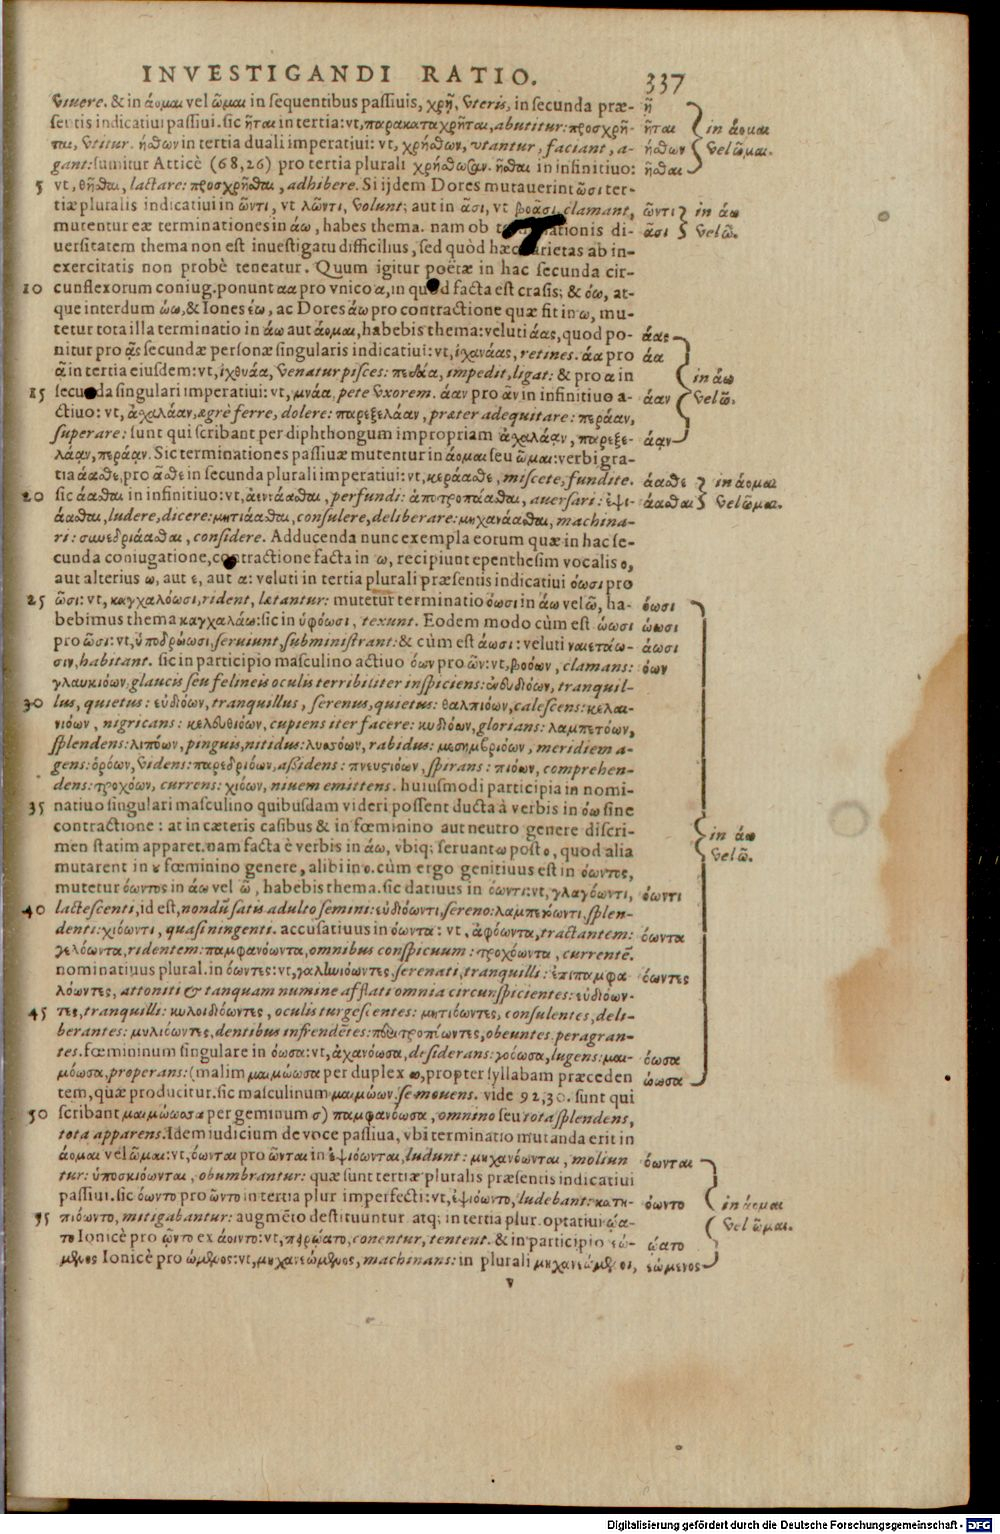 INVESTIGANDI RATIO. 337
viuere. & in άομαι vel ῶμαι in sequentibus passiuis, χρῆ, vteris, in secunda præ- ῆ
sentis indicatiui passiui. sic ῆται in tertia: vt, παρακαταχρῆται, abutitur: προσχρῆ- ῆται in άομαι
ται, vtitur. ήσθων in tertia duali imperatiui: vt, χρήσθων, vtantur, faciant, a- ήσθων vel ῶμαι.
gant: sumitur Atticè (68,26) pro tertia plurali χρήσθωσαν. ῆσθαι in infinitiuo: ῆσθαι
5 vt, θῆσθαι, lactare: προσχρῆσθαι, adhibere. Si ijdem Dores mutauerint ῶσι ter-
tiæ pluralis indicatiui in ῶντι, vt λῶντι, volunt; aut in ᾶσι, vt βοᾶσι, clamant, ῶντι in άω
mutentur eæ terminationes in άω, habes thema. nam ob di- ᾶσι vel ῶ.
uersitatem thema non est inuestigatu difficilius, sed quòd hæc varietas ab in-
exercitatis non probè teneatur. Quum igitur poëtæ in hac secunda cir-
10 cunflexorum coniug. ponunt αα pro vnico α, in quod facta est crasis; & όω, at-
que interdum ώω, & Iones έω, ac Dores άω pro contractione quæ fit in ω, mu-
tetur tota illa terminatio in άω aut άομαι, habebis thema: veluti άας, quod po- άας
nitur pro ᾷς secundæ personæ singularis indicatiui: vt, ἰχανάας, retines. άα pro άα
ᾷ in tertia eiusdem: vt, ἰχθυάα, venatur pisces: πεδάα, impedit, ligat: & pro α in in άω
15 secunda singulari imperatiui: vt, μνάα, pete vxorem. άαν pro ᾶν in infinitiuo a- άαν vel ῶ.
ctiuo: vt, ἀχαλάαν, ægrè ferre, dolere: παρεξελάαν, præter adequitare: περάαν,
superare: sunt qui scribant per diphthongum impropriam ἀχαλάᾳν, παρεξε- άᾳν
λάᾳν, περάᾳν. Sic terminationes passiuæ mutentur in άομαι seu ῶμαι: verbi gra-
tia άασθε, pro ᾶσθε in secunda plurali imperatiui: vt, κεράασθε, miscete, fundite. άασθε in άομαι
20 sic άασθαι in infinitiuo: vt, perfundi: ἀποτροπάασθαι, auersari: ἑψι- άασθαι vel ῶμαι.
άασθαι, ludere, dicere: μητιάασθαι, consulere, deliberare: μηχανάασθαι, machina-
ri: συνεδριάασθαι, considere. Adducenda nunc exempla eorum quæ in hac se-
cunda coniugatione, contractione facta in ω, recipiunt epenthesim vocalis ο,
aut alterius ω, aut ε, aut α: veluti in tertia plurali præsentis indicatiui όωσι pro
25 ῶσι: vt, καγχαλόωσι, rident, lætantur: mutetur terminatio όωσι in άω vel ῶ, ha- όωσι
bebimus thema καγχαλάω: sic in ὑφόωσι, texunt. Eodem modo cùm est ώωσι ώωσι
pro ῶσι: vt, ὑποδρώωσι, seruiunt, subministrant: & cùm est άωσι: veluti ναιετάω- άωσι
σιν, habitant. sic in participio masculino actiuo όων pro ῶν: vt, βοόων, clamans: όων
γλαυκιόων, glaucis seu felineis oculis terribiliter inspiciens: tranquil-
30 lus, quietus: εὐδιόων, tranquillus, serenus, quietus: θαλπιόων, calescens: κελαι-
νιόων, nigricans: κελευθιόων, cupiens iter facere: κυδιόων, glorians: λαμπετόων,
splendens: λιπόων, pinguis, nitidus: λυσσόων, rabidus: μεσημβριόων, meridiem a-
gens: ὁρόων, videns: παρεδριόων, assidens: πνευστιόων, spirans: πιόων, comprehen-
dens: τροχόων, currens: χιόων, niuem emittens. huiusmodi participia in nomi-
35 natiuo singulari masculino quibusdam videri possent ducta à verbis in όω sine
contractione: at in cæteris casibus & in fœminino aut neutro genere discri- in άω
men statim apparet. nam facta è verbis in άω, vbiq; seruant ω post ο, quod alia vel ῶ.
mutarent in ου fœminino genere, alibi in ο. cùm ergo genitiuus est in όωντος,
mutetur όωντος in άω vel ῶ, habebis thema. sic datiuus in όωντι: vt, γλαγόωντι, όωντι
40 lactescenti, id est, nondũ satis adulto semini: εὐδιόωντι, sereno: λαμπετόωντι, splen-
denti: χιόωντι, quasi ningenti. accusatiuus in όωντα: vt, ἀφόωντα, tractantem: όωντα
γελόωντα, ridentem: παμφανόωντα, omnibus conspicuum: τροχόωντα, currentẽ.
nominatiuus plural. in όωντες: vt, γαληνιόωντες, serenati, tranquilli: ἐπιπαμφα όωντες
λόωντες, attoniti & tanquam numine afflati omnia circunspicientes: εὐδιόων-
45 τες, tranquilli: κυλοιδιόωντες, oculis turgescentes: μητιόωντες, consulentes, deli-
berantes: μυλιόωντες, dentibus infrendẽtes: obeuntes, peragran-
tes. fœmininum singulare in όωσα: vt, ἀχανόωσα, desiderans: γοόωσα, lugens: μαι- όωσα
μόωσα, properans: (malim μαιμώωσα per duplex ω, propter syllabam præceden ώωσα
tem, quæ producitur. sic masculinum μαιμώων, se mouens. vide 92,30. sunt qui
50 scribant μαιμώωσσα per geminum σ) παμφανόωσα, omnino seu tota splendens,
tota apparens. Idem iudicium de voce passiua, vbi terminatio mutanda erit in
άομαι vel ῶμαι: vt, όωνται pro ῶνται in ἑψιόωνται, ludunt: μηχανόωνται, moliun όωνται
tur: ὑποσκιόωνται, obumbrantur: quæ sunt tertiæ pluralis præsentis indicatiui
passiui. sic όωντο pro ῶντο in tertia plur imperfecti: vt, ἑψιόωντο, ludebant: κατη- όωντο in άομαι
55 πιόωντο, mitigabantur: augmẽto destituuntur. atq; in tertia plur. optatiui ῴα- vel ῶμαι.
το Ionicè pro ῷντο ex άοιντο: vt, πειρῴατο, conentur, tentent. & in participio εώ- ῴατο
μενος Ionicè pro ώμενος: vt, μηχανεώμενος, machinans: in plurali μηχανεώμενοι, εώμενος
v
Digitalisierung gefördert durch die Deutsche Forschungsgemeinschaft - DFG